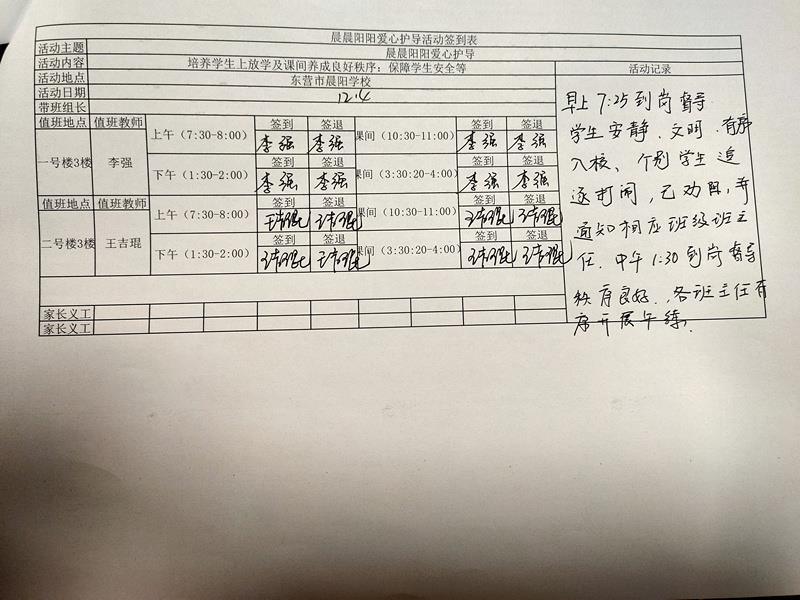 晨晨阳阳爱心护导活动签到表
活动主题 晨晨阳阳爱心护导
活动内容 培养学生上放学及课间养成良好秩序；保障学生安全等 活动记录
活动地点 东营市晨阳学校
活动日期 12.4
带班组长
值班地点 值班教师 上午（7:30-8:00） 签到 签退 课间（10:30-11:00） 签到 签退
李强 李强 李强 李强
一号楼3楼 李强 下午（1:30-2:00） 签到 签退 课间（3:30:20-4:00） 签到 签退
李强 李强 李强 李强
值班地点 值班教师 上午（7:30-8:00） 签到 签退 课间（10:30-11:00） 签到 签退
王吉琨 王吉琨 王吉琨 王吉琨
二号楼3楼 王吉琨 下午（1:30-2:00） 签到 签退 课间（3:30:20-4:00） 签到 签退
王吉琨 王吉琨 王吉琨 王吉琨
家长义工
家长义工
早上7:25到岗督导
学生安静、文明、有序
入校、个别学生追
逐打闹，已劝阻，并
通知相应班级班主
任.中午1:30到岗督导
秩序良好.，各班主任有
序开展午练.